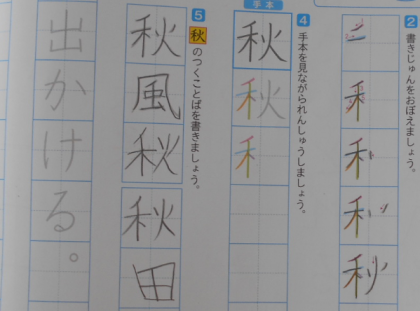 2 書きじゅんをおぼえましょう。
二
禾
秋
手本
4 手本を見ながられんしゅうしましょう。
秋
秋
禾
5 秋のつくことばを書きましょう。
秋
風
秋
秋
田
出かける。